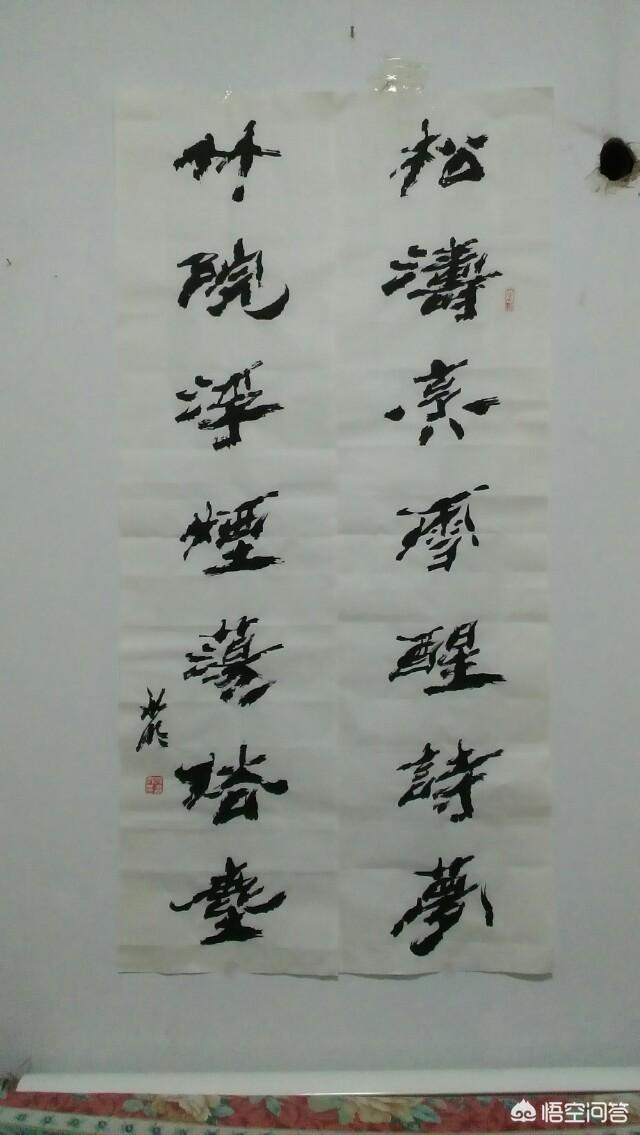 松濤烹雪醒詩夢
竹院浮煙蕩俗塵
悟空问答